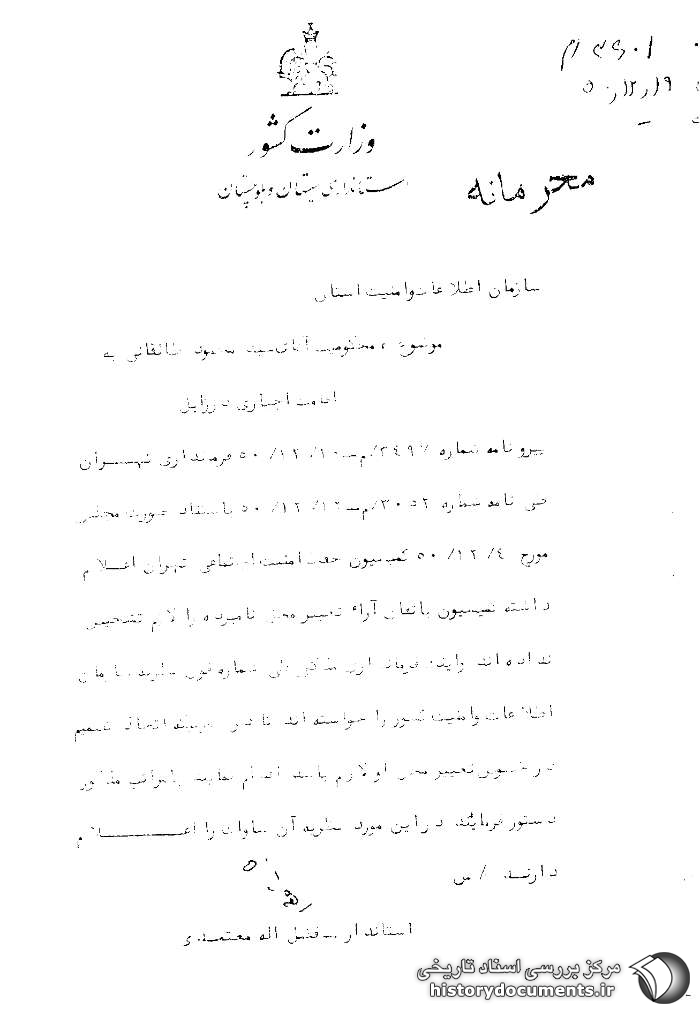 ۳۶۰۱م
۵۰/۱۲/۱۹
وزارت کشور
استانداری سیستان و بلوچستان
محرمانه
سازمان اطلاعات وامنیت استان
موضوع : محکومیت آقای سید محمود طالقانی به
اقامت اجباری در زابل
پیرو نامه شماره فرمانداری تهران
طی نامه شماره ۳۰۵۲/م باستناد صورت مجلس
مورخ ۵۰/۱۲/۴ کمیسیون حفظ امنیت اجتماعی تهران اعلام
داشته کمیسیون باتفاق آراء تغییر محل نامبرده را لازم تشخیص
نداده اند شماره فوق نظریه سازمان
اطلاعات وامنیت کشور را خواسته اند تا در اتخاذ تصمیم
در خصوص تغییر محل او لازم باشد اقدام نمایند بامراتب مذکور
دستور فرمایند در این مورد نظریه آن ساواک را اعلام
دارند /س
استاندار ـ فضل اله معتمدی
مرکز بررسی اسناد تاریخی
historydocuments.ir